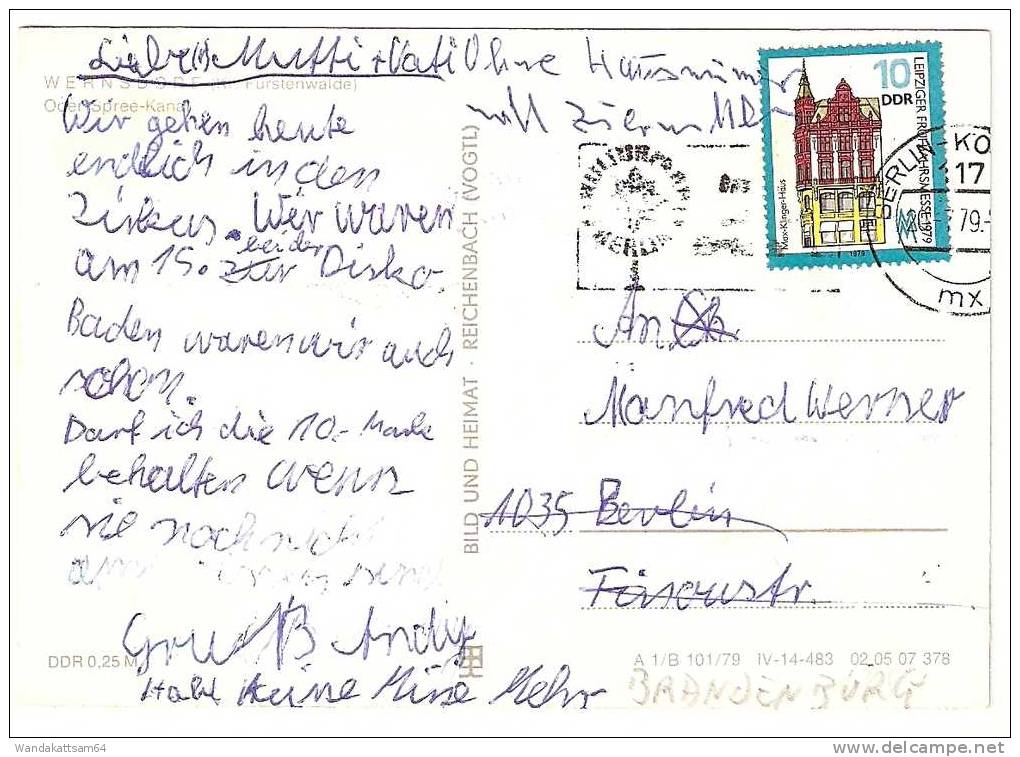 Liebe(r) Mutti + Vati
WERNSDORF (Kr. Fürstenwalde)
Oder-Spree-Kanal
Wir gehen heute
endlich in den
Zirkus. Wir waren
am 15. zur beider Disko.
Baden waren wir auch
schon.
Darf ich die 10,- Mark
behalten wenn
sie noch nicht
Gruß Andy
Habe keine Miese Mehr
DDR 0,25 M
BILD UND HEIMAT · REICHENBACH (VOGTL)
Ohne Hausnummer
nicht zu ermitteln
10
DDR
LEIPZIGER FRÜHJAHRSMESSE 1979
Max-Klinger-Haus
1979
BERLIN-KÖ
117
79.-
mx
BERLIN
An
Manfred Werner
1035 Berlin
A 1/B 101/79 IV-14-483 02 05 07 378
BRANDENBURG
Wandakattsam64
www.delcampe.net